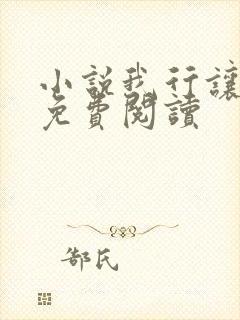 小說我行讓
免費閱讀
郜氏